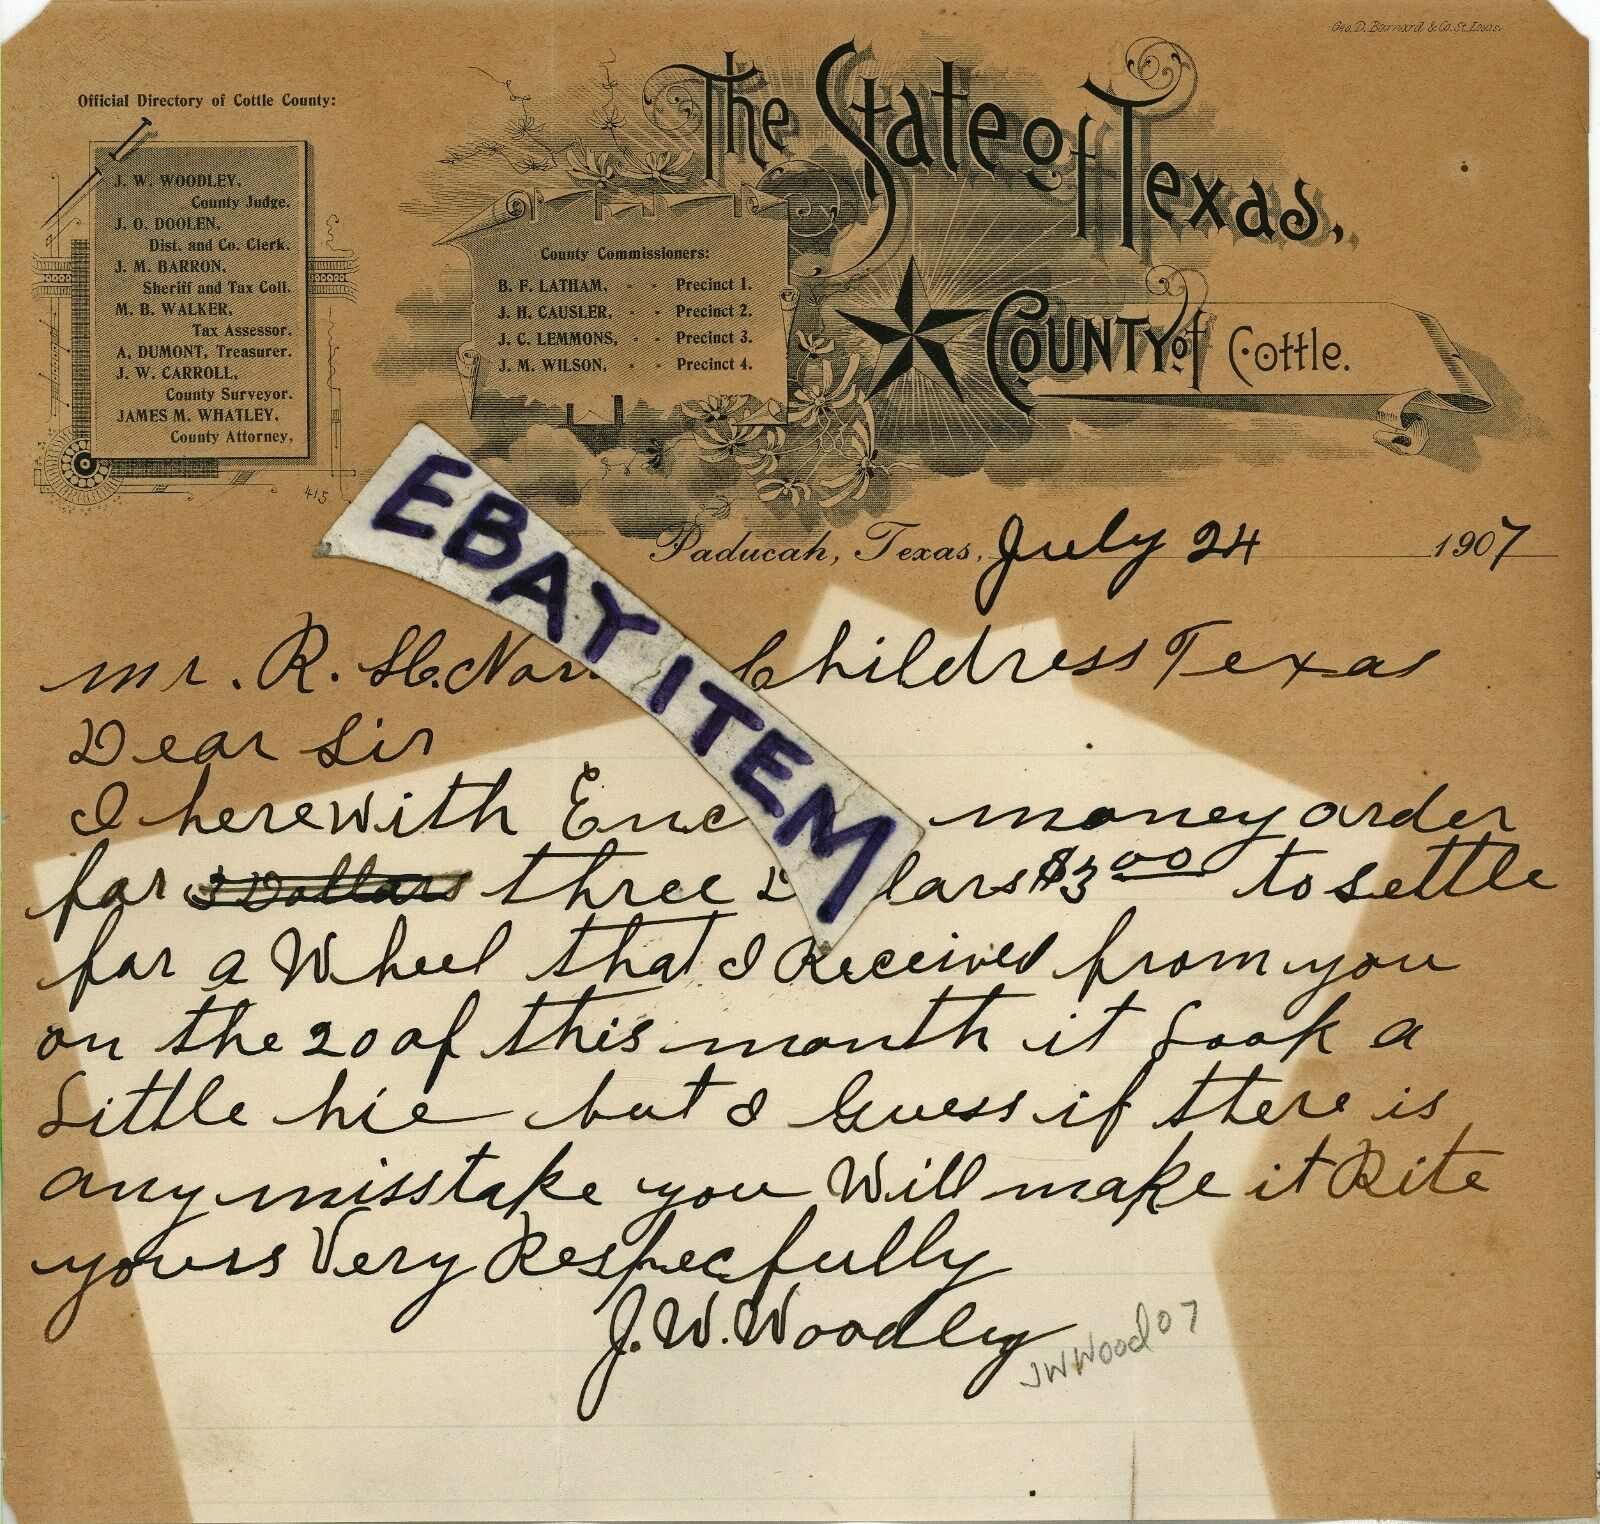 Geo. D. Barnard & Co. St. Louis.
The State of Texas,
County of Cottle.
Official Directory of Cottle County:
J. W. WOODLEY,
County Judge.
J. O. DOOLEN,
Dist. and Co. Clerk.
J. M. BARRON,
Sheriff and Tax Coll.
M. B. WALKER,
Tax Assessor.
A. DUMONT, Treasurer.
J. W. CARROLL,
County Surveyor.
JAMES M. WHATLEY,
County Attorney,
415
County Commissioners:
B. F. LATHAM, - - Precinct 1.
J. H. CAUSLER, - - Precinct 2.
J. C. LEMMONS, - - Precinct 3.
J. M. WILSON, - - Precinct 4.
EBAY ITEM
Paducah, Texas, July 24 1907
mr. R. H. Childress Texas
Dear Sir
I herewith money order
for 3 Dollars three $3 00 to settle
for a Wheel that I Received from you
on the 20 of this month it Look a
Little hie but I Guess if there is
any misstake you Will make it Rite
yours Very Respecfully
J. W. Woodley
JWWood07